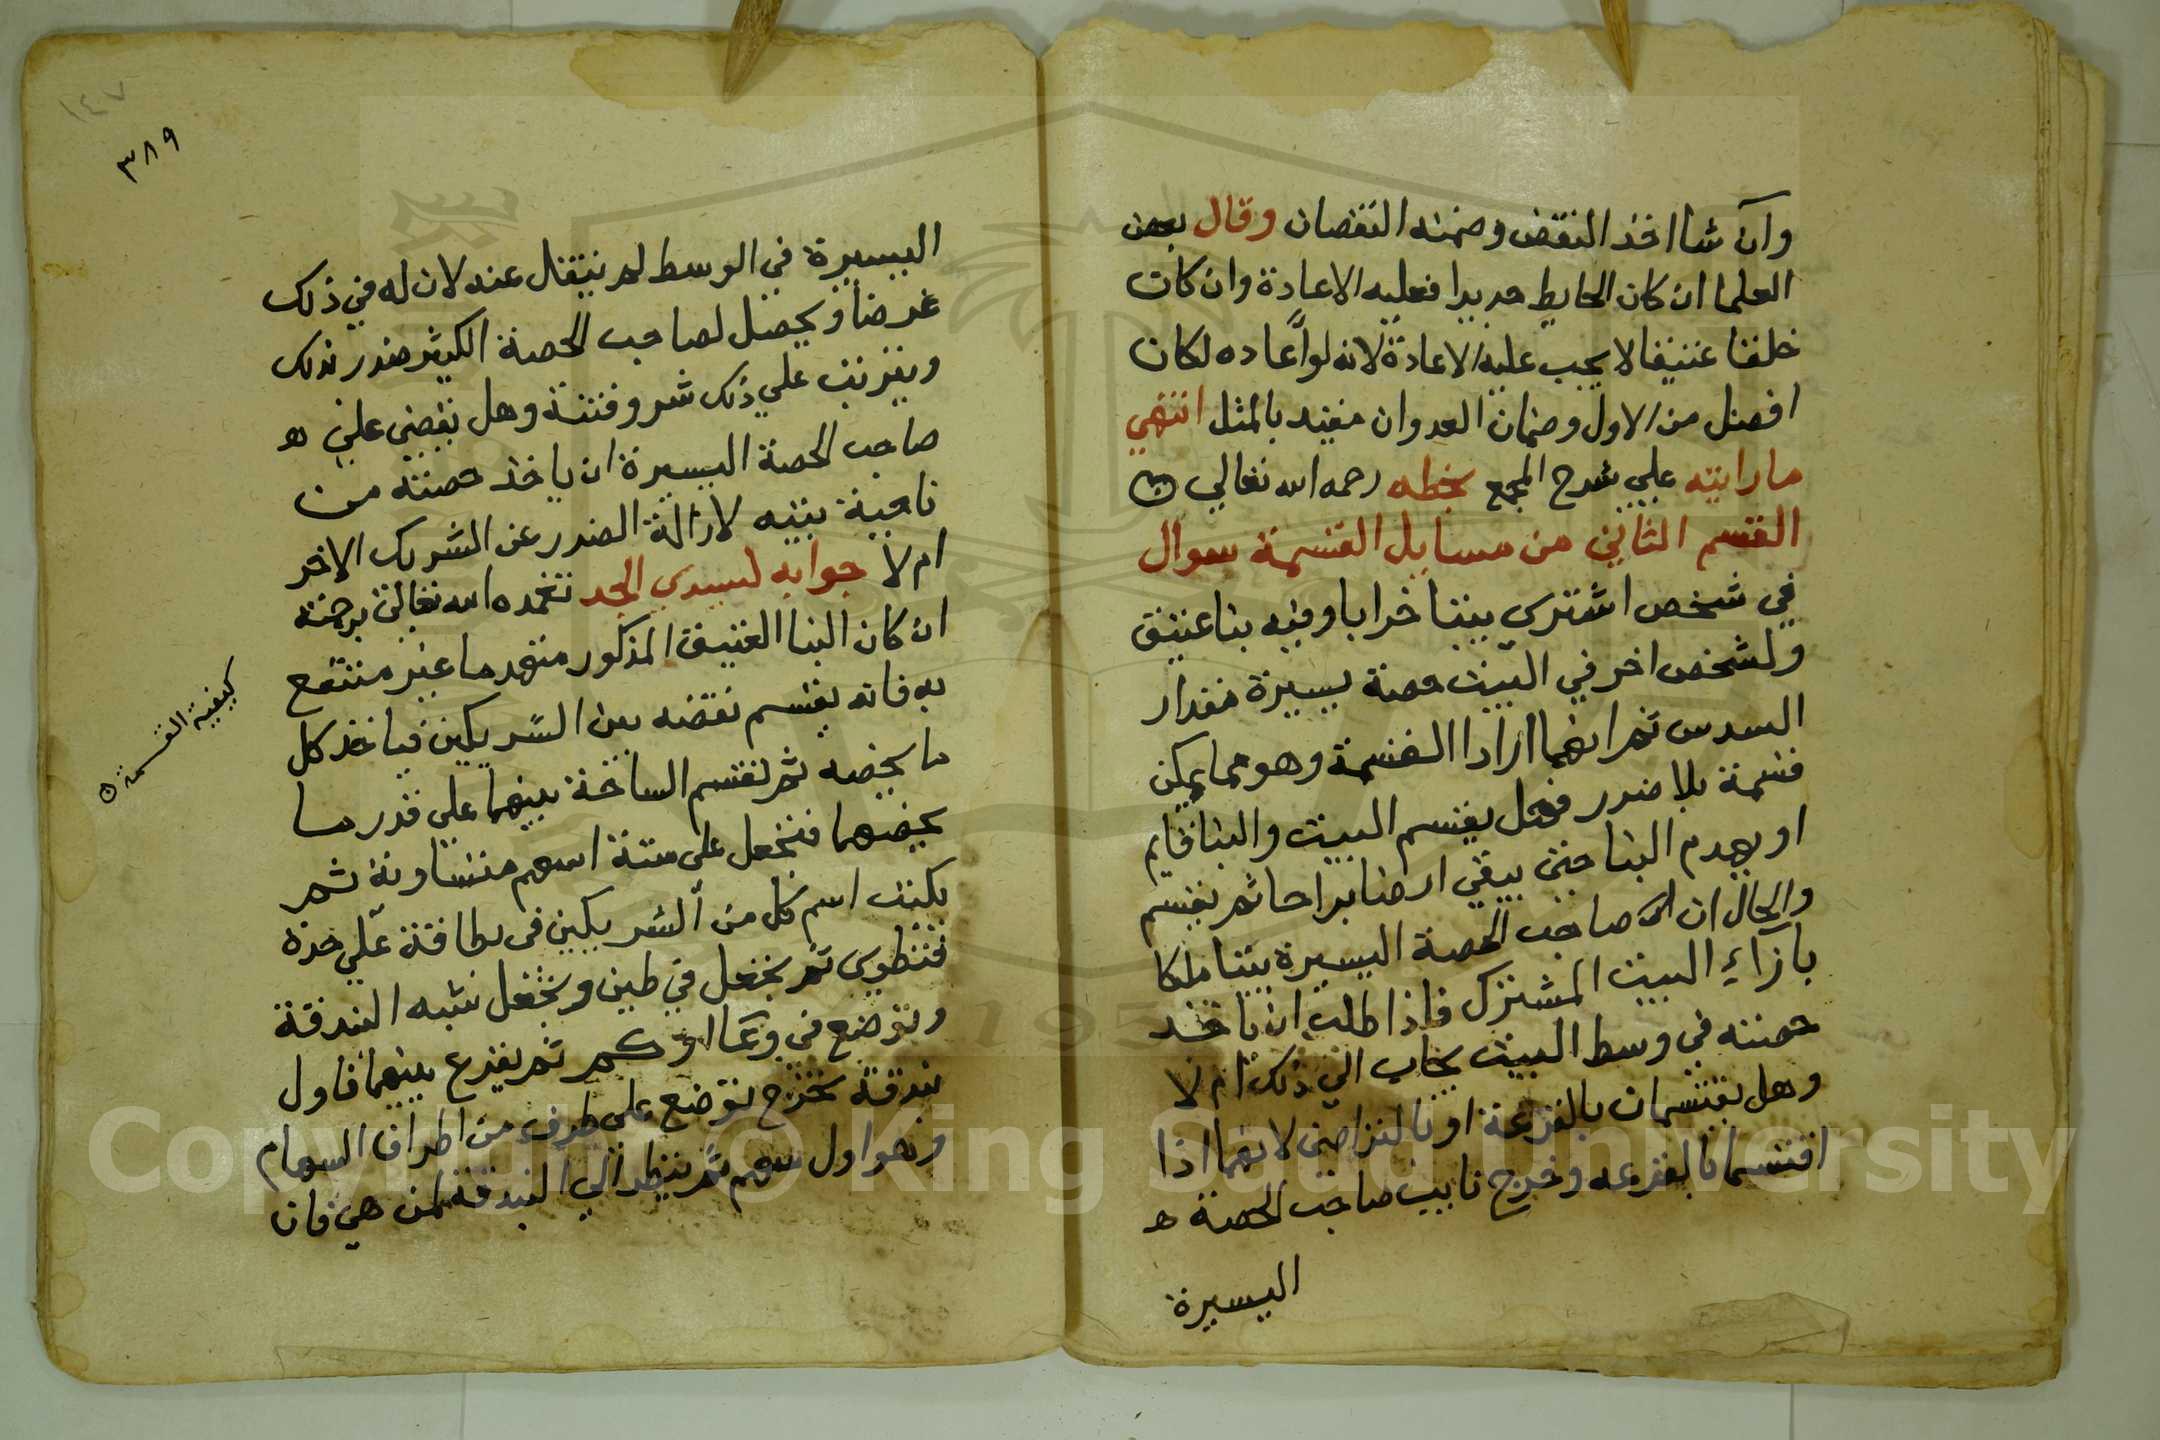 وان شا اخذ النقض وضمنه النقصان وقال بعض
العلما ان كان الحايط جديدا فعليه الاعادة وان كان
خلقنا عتيقا لا يجب عليه الاعادة لانه لو اعاده لكان
افضل من الاول وضمان العدوان مقيد بالمثل انتهي
ما رايته علي شرح المجمع بخطه رحمه الله تعالي
القسم الثاني من مسايل القسمة سوال
في شخص اشتري بيتا خرابا وفيه بنا عتيق
ولشخص اخر في البيت حصة يسيرة مقدار
السدس ثم انهما ارادا القسمة وهو مما يمكن
قسمة بلا ضرر فهل يقسم البيت والبنا قايم
او يهدم البنا حتى يبقي ارضا براحا ثم يقسم
والحال ان لك صاحب الحصة اليسيرة بيتا ملكا
بازاء البيت المشترك فاذا طلب ان ياخذ
حصته في وسط البيت يجاب الي ذلك ام لا
وهل يقتسمان بالقرعة او بالتراضي لانهما اذا
اقتسما بالقرعه وخرج نايب صاحب الحصة ه
اليسيرة
١٤٧
٣٨٩
اليسيرة في الوسط لم ينتقل عنه لان له في ذلك
غرضا ويحصل لصاحب الحصة الكثير ضرر بذلك
ويترتب علي ذلك شر وفتنة وهل يقضي علي ه
صاحب الحصة اليسيرة ان ياخذ حصته من
ناحية بيته لازالة الضرر عن الشريك الاخر
ام لا جوابه لسيدي الجد تغمده الله تعالي برحمته
ان كان البنا العتيق المذكور متهدما غير منتفع
به فانه يقسم نقضه بين الشريكين فياخذ كل
ما يخصه ثم تقسم الساحة بينهما علي قدر ما
يخصهما فتجعل على ستة اسهم متساوية ثم
يكتب اسم كل من الشريكين في بطاقة علي حدة
فتطوي ثم يجعل في طين ويجعل شبه البندقة
وتوضع في وعاا او كم ثم يقرع بينهما فاول
بندقة تخرج توضع على طرف من اطراف السهام
وهو اول سهم ثم ينظر الي البندقة لمن هي فان
كيفية القسمة
Copyright © King Saud University